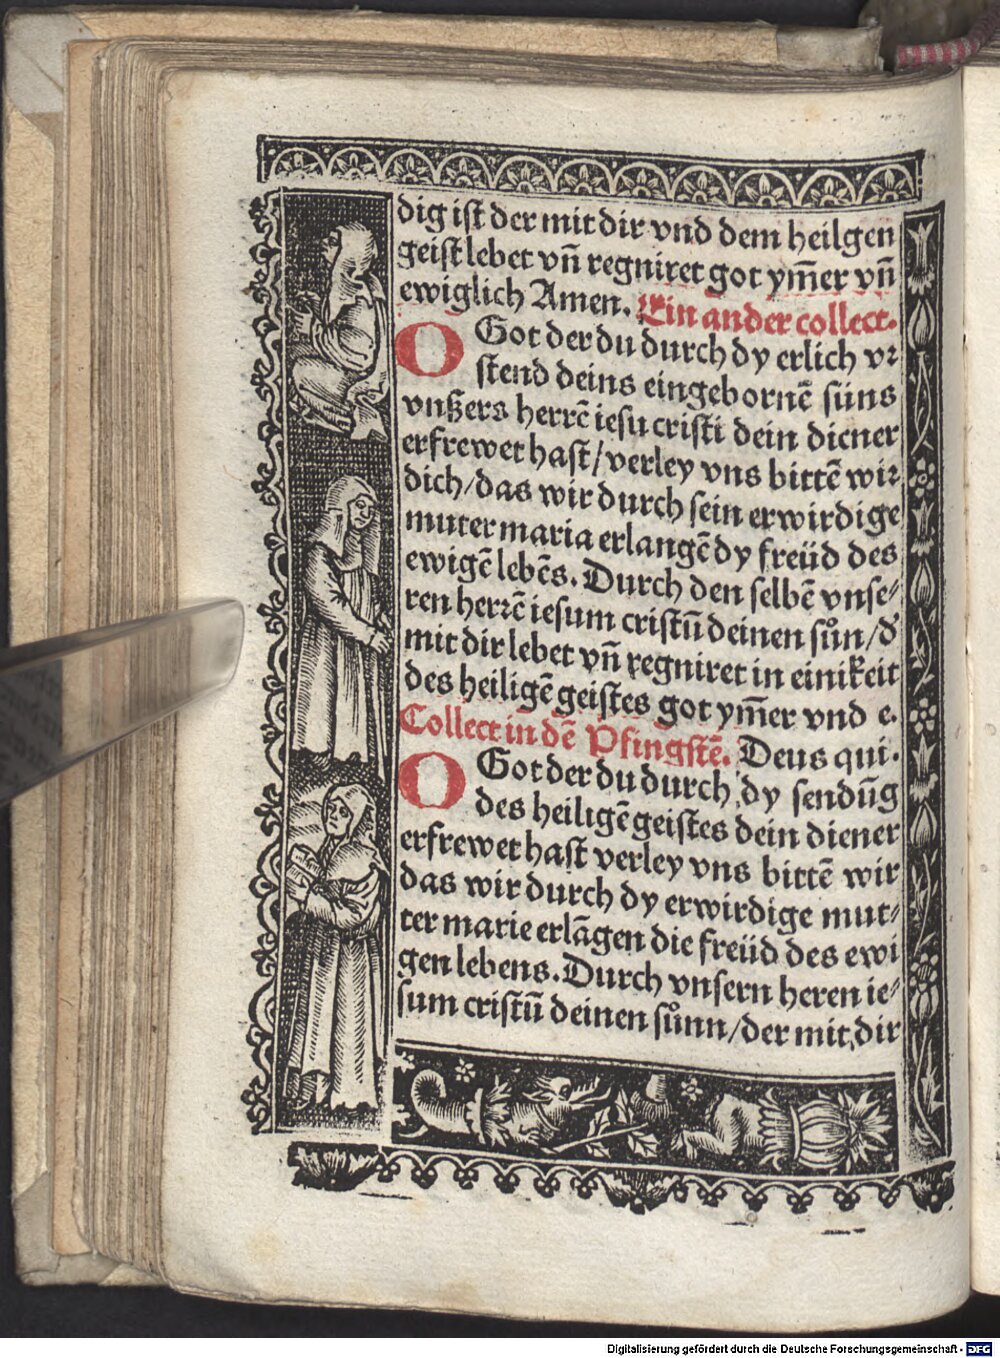 dig ist der mit dir vnd dem heilgen
geist lebet vñ regniret got ym̃er vñ
ewiglich Amen. Ein ander collect.
O Got der du durch dy erlich vꝛ
stend deins eingebornẽ süns
vnßers herrẽ iesu cristi dein diener
erfrewet hast/verley vns bittẽ wiꝛ
dich/das wir durch sein erwirdige
muter maria erlangẽ dy freüd des
ewigẽ lebẽs. Durch den selbẽ vnse⸗
ren herꝛẽ iesum cristũ deinen sůn/ď
mit dir lebet vñ regniret in einikeit
des heiligẽ geistes got ym̃er vnd e.
Collect in dẽ Pfingstẽ. Deus qui.
O Got der du durch dy sendũg
des heiligẽ geistes dein diener
erfrewet hast verley vns bittẽ wir
das wir durch dy erwirdige mut⸗
ter marie erlãgen die freüd des ewi
gen lebens. Durch vnsern heren ie⸗
sum cristũ deinen sůnn/der mit dir
Digitalisierung gefördert durch die Deutsche Forschungsgemeinschaft - DFG